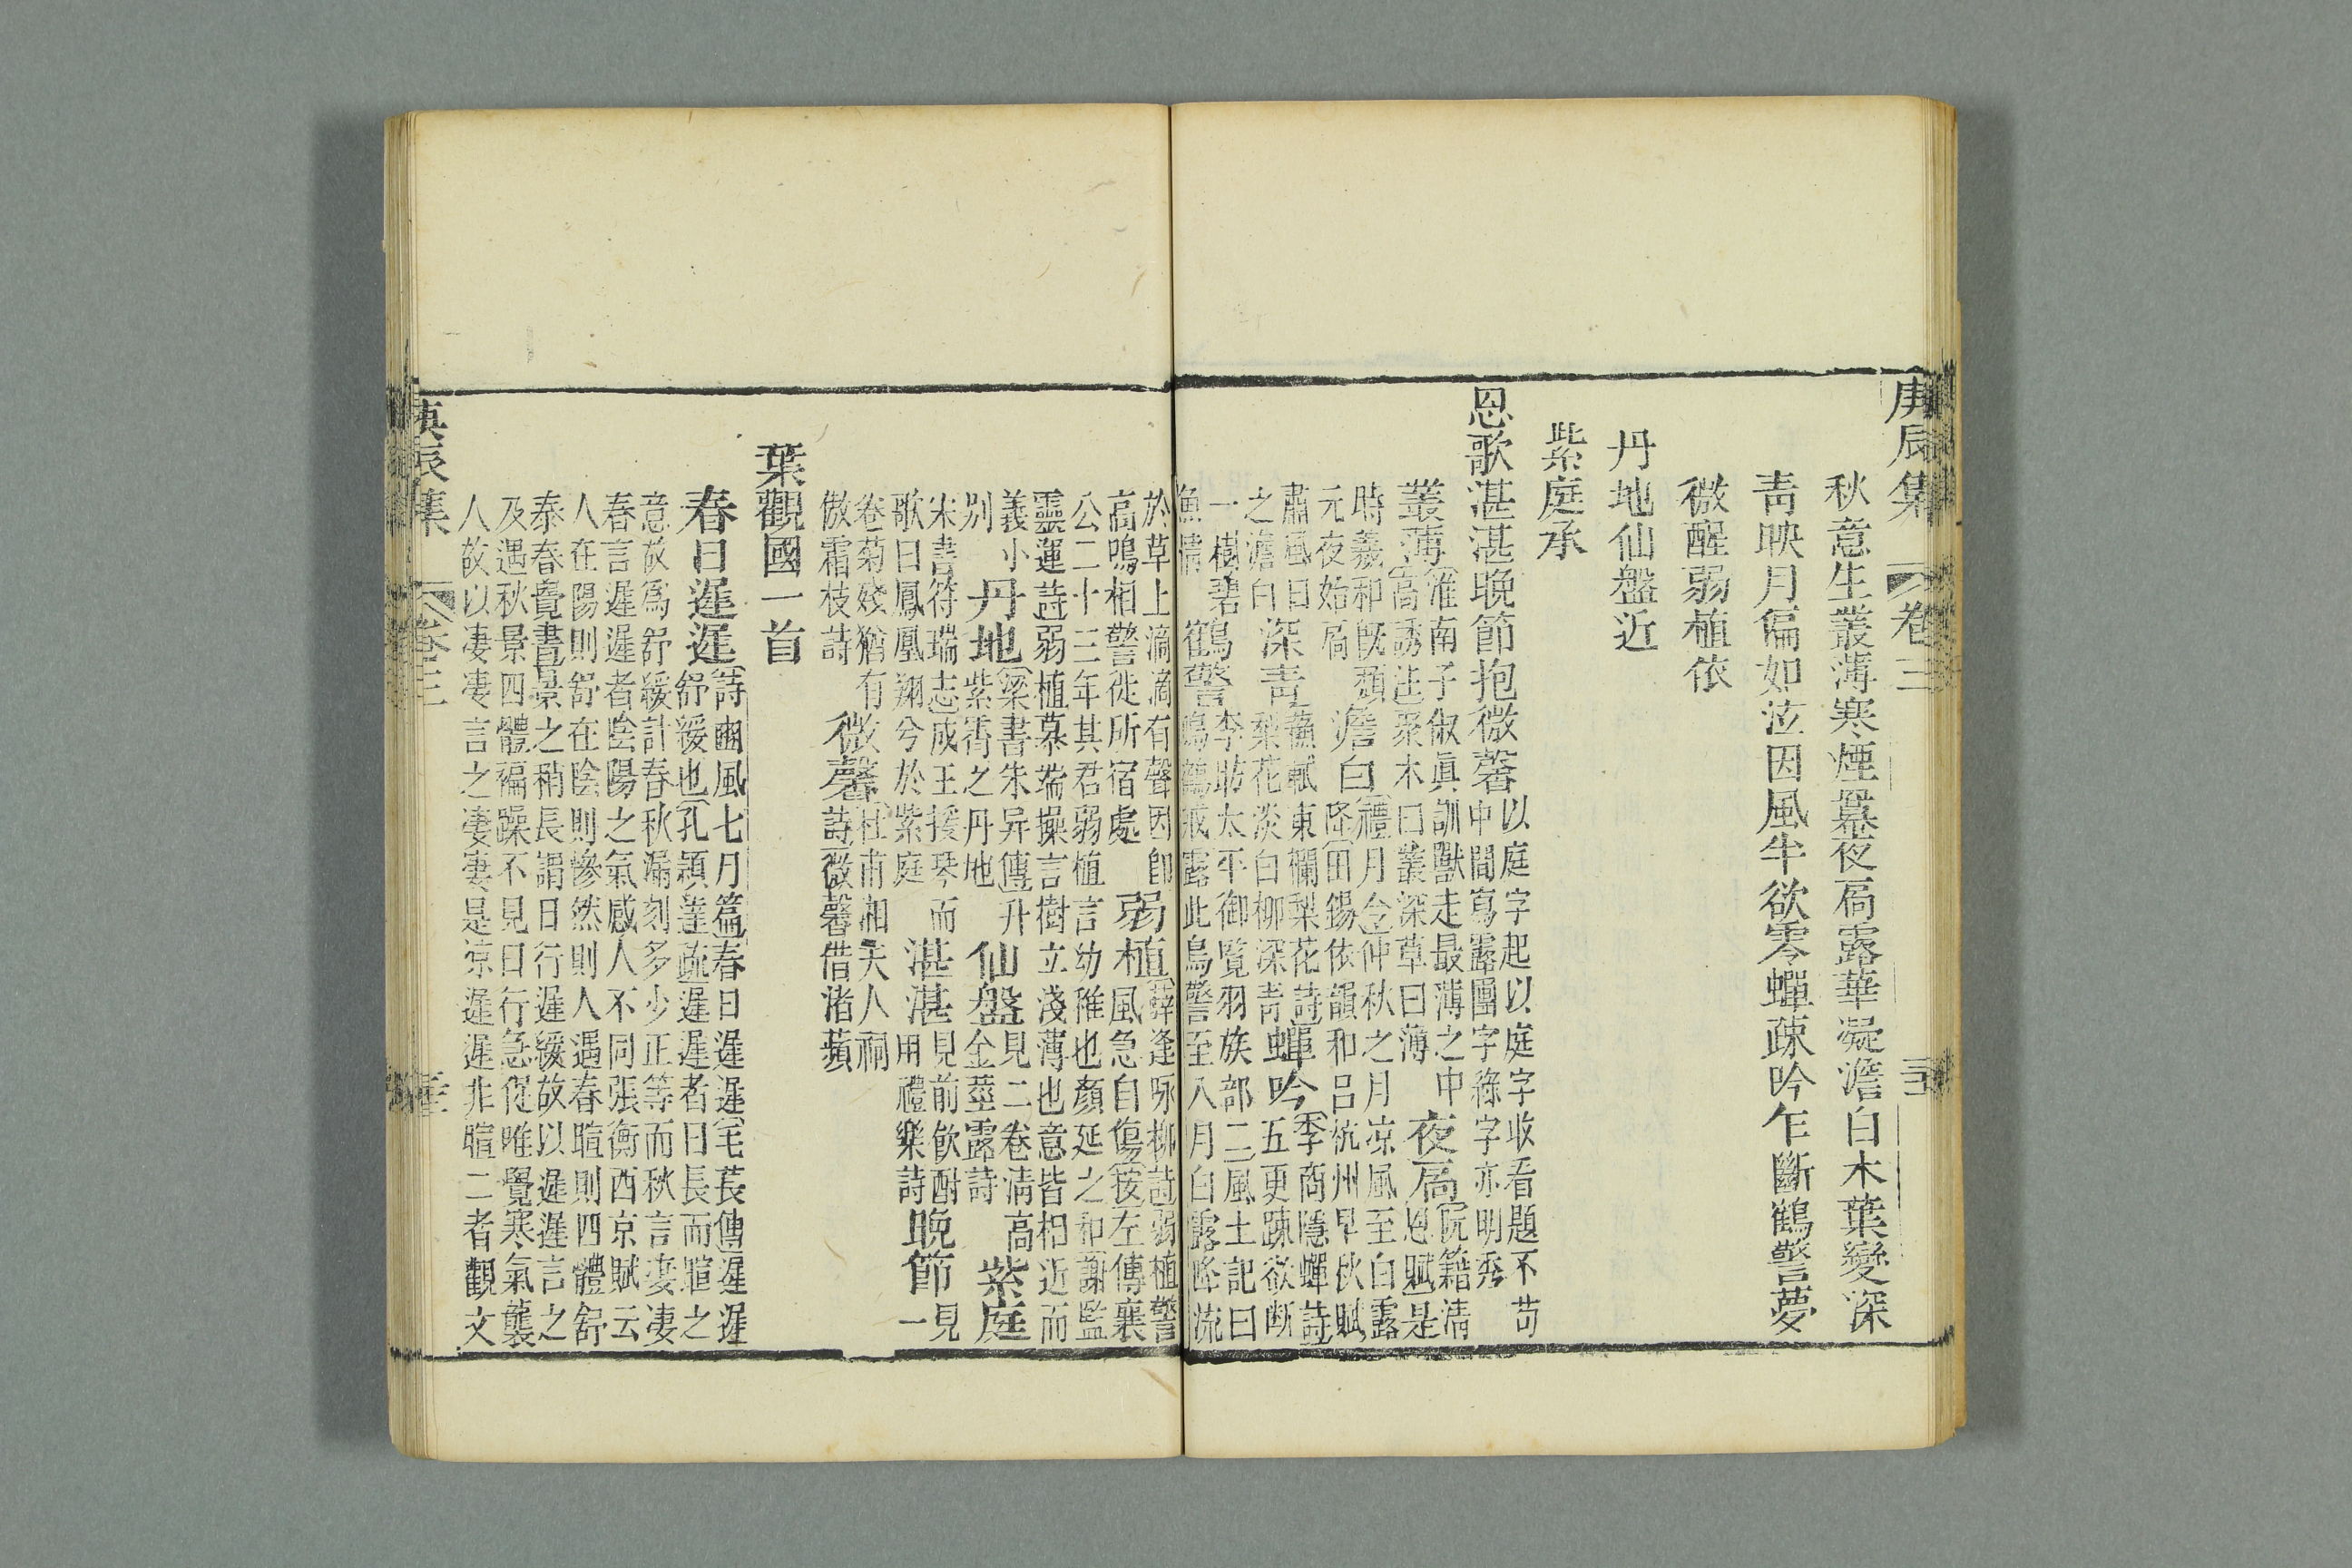 庚辰集 卷三
秋意生叢薄寒煙羃夜扃露華凝澹白木葉變深
青映月偏如泣因風半欲零蟬疎吟乍斷鶴警夢
微醒弱植依
丹地仙盤近
紫庭承
恩歌湛湛晚節抱微馨以庭字起以庭字收看題不苟
中間寫露團字綠字亦明秀
叢薄淮南子俶眞訓獸走最薄之中
高誘注聚木曰叢深草曰薄
夜扃阮籍淸
思賦是
時羲和旣頹
元夜始扃
澹白禮月令仲秋之月涼風至白露
降田錫依韻和呂杭州早秋賦
肅風日
之澹白
深靑蘇軾東欄梨花詩
梨花淡白柳深靑
蟬吟季商隱蟬詩
五更疎欲斷
一樹碧
無情
鶴警李昉太平御覽羽族部二風土記曰
鳴鶴戒露此鳥警至八月白露降流
於草上滴滴有聲因卽
高鳴相警徙所宿處
弱植薛逢咏柳詩弱植警
風急自傷按左傳襄
公二十三年其君弱植言幼稚也顏延之和謝監
靈運詩弱植慕端操言樹立淺薄也意皆相近而
義小
別
丹地梁書朱异傳升
紫霄之丹地
仙盤見二卷淸高
金莖露詩
紫庭
宋書符瑞志成王援琴而
歌曰鳳凰翔兮於紫庭
湛湛見前飮酎
用禮樂詩
晚節見
一
卷菊殘猶有
傲霜枝詩
微馨杜甫湘夫人祠
詩微馨借渚蘋
葉觀國一首
春日遲遲詩豳風七月篇春日遲遲毛萇傳遲遲
舒緩也孔穎達疏遲遲者日長而暄之
意故爲舒緩計春秋漏刻多少正等而秋言凄凄
春言遲遲者陰陽之氣感人不同張衡西京賦云
人在陽則舒在陰則慘然則人遇春暄則四體舒
泰春覺晝景之稍長謂日行遲緩故以遲遲言之
及遇秋景四體褊躁不見日行急促唯覺寒氣襲
人故以凄凄言之凄凄是涼遲遲非暄二者觀文
庚辰集 卷三